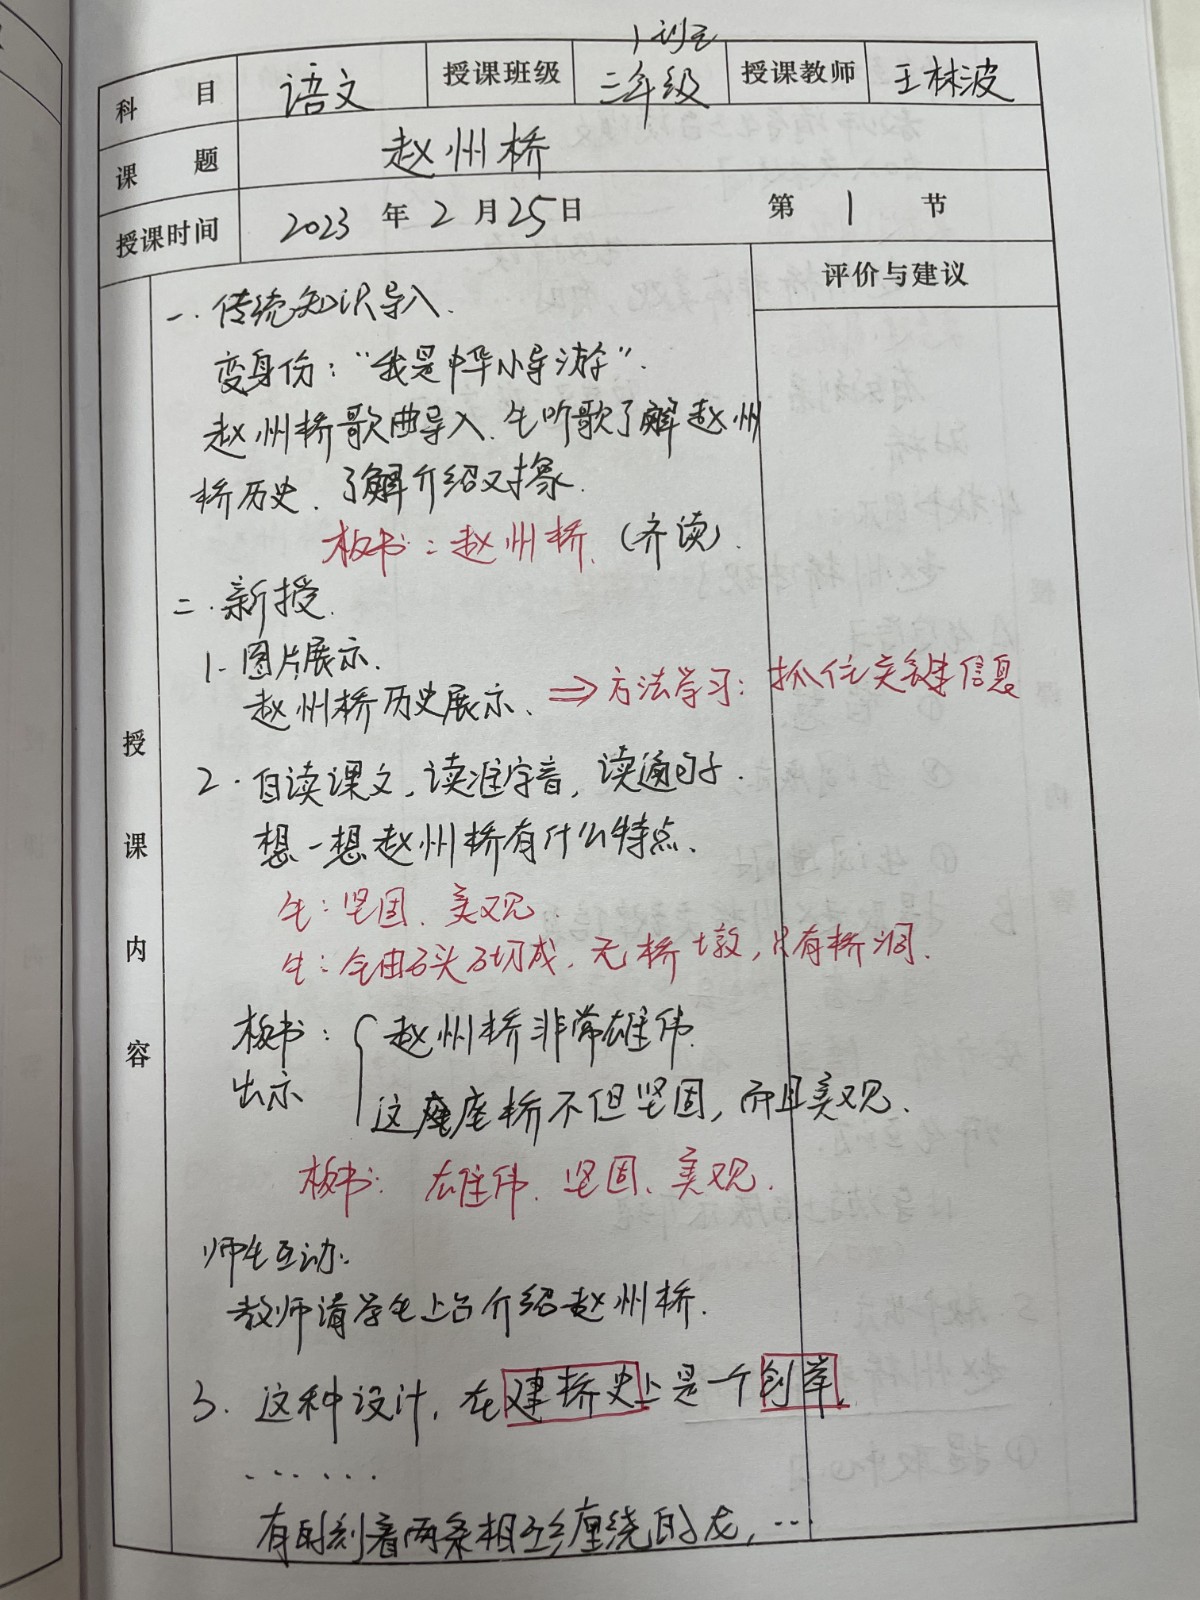 科 目 语文 授课班级 三年级 授课教师 王林波
课 题 赵州桥
授课时间 2023 年 2 月 25 日 第 1 节
授课内容
评价与建议
一. 传统知识导入.
变身份：“我是中华小导游”.
赵州桥歌曲导入. 生听歌了解赵州
桥历史. 了解介绍对象.
板书：赵州桥. (齐读).
二. 新授.
1. 图片展示.
赵州桥历史展示. ⇒ 方法学习：抓住关键信息
2. 自读课文, 读准字音, 读通句子.
想一想赵州桥有什么特点.
生：坚固、美观.
生：全由石头砌成, 无桥墩, 只有桥洞.
板书： 赵州桥非常雄伟.
出示 这座桥不但坚固, 而且美观.
板书: 雄伟、坚固、美观.
师生互动:
教师请学生上台介绍赵州桥.
3. 这种设计, 在建桥史上是一个创举.
......
有的刻着两条相互缠绕的龙, ...